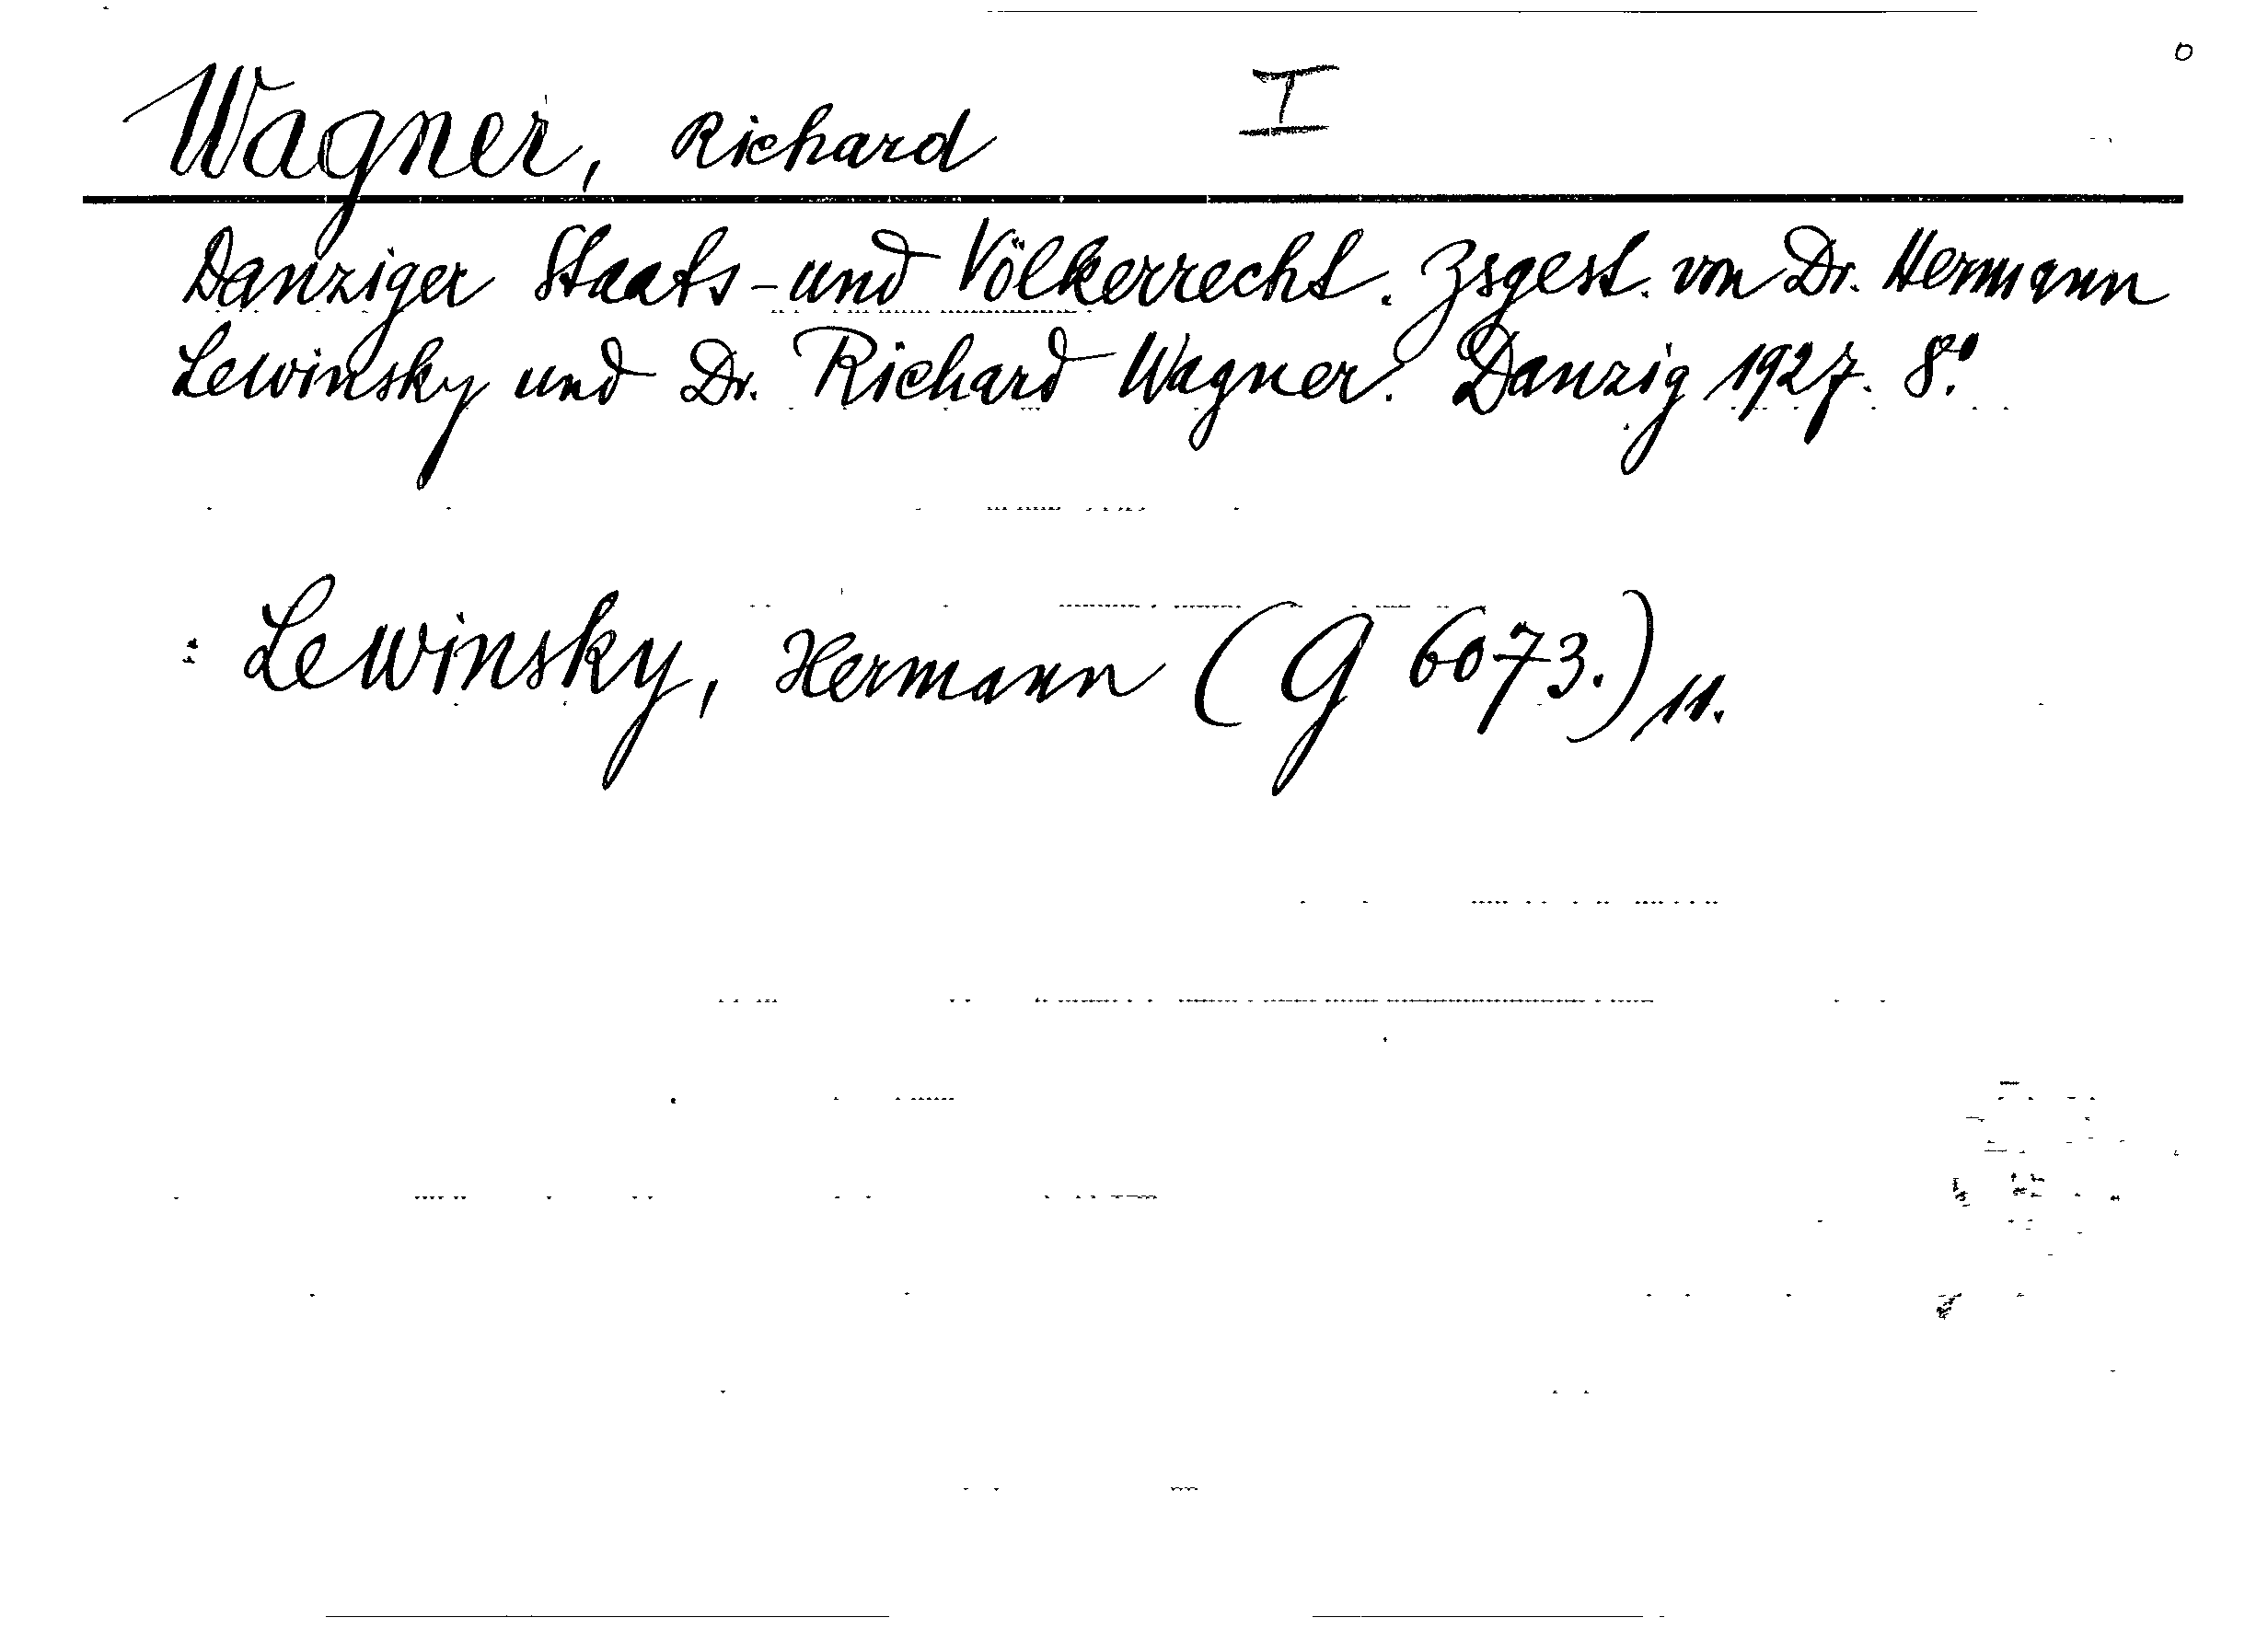 Wagner, Richard I
Danziger Staats- und Völkerrecht. Zsgest. von Dr. Hermann
Lewinsky und Dr. Richard Wagner. Danzig 1927. 8°.
: Lewinsky, Hermann (G 6073.) 11.